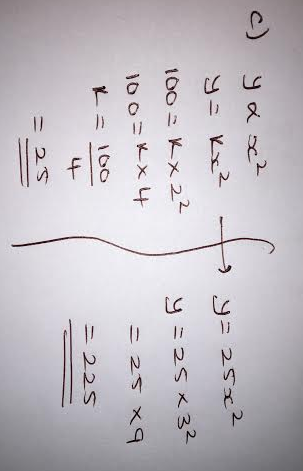 c) y ∝ x²
y = Kx²
100 = K × 2²
100 = K × 4
K = 100/4
= 25
y = 25x²
y = 25 × 3²
= 25 × 9
= 225